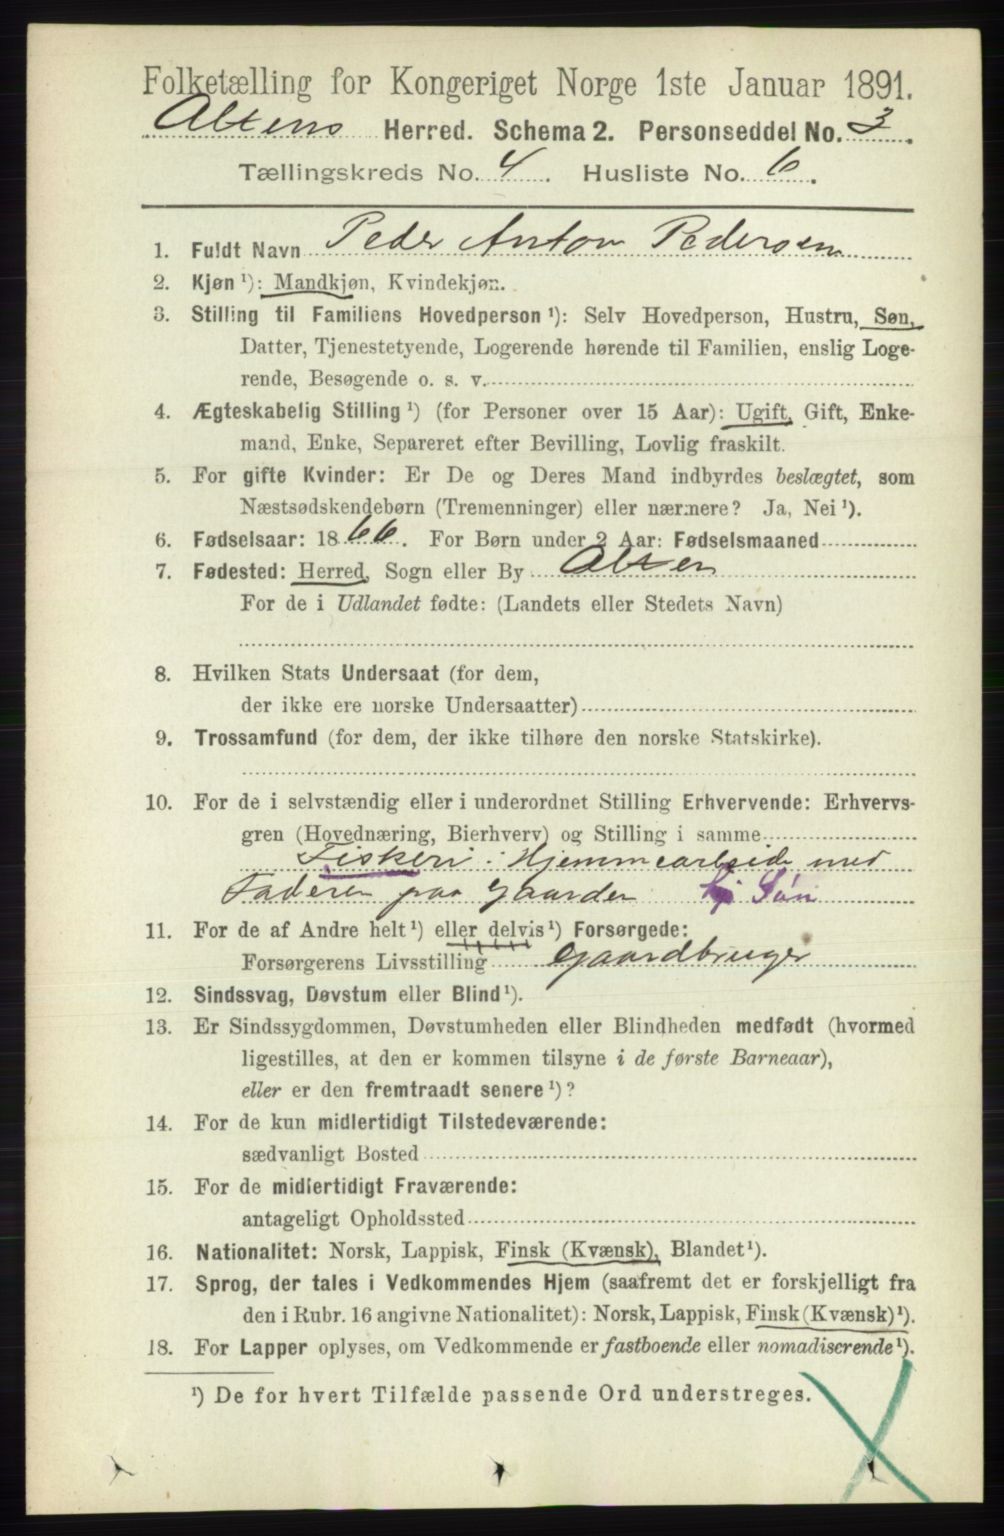 Folketælling for Kongeriget Norge 1ste Januar 1891.
Altens Herred. Schema 2. Personseddel No. 3.
Tællingskreds No. 4. Husliste No. 6.
1. Fuldt Navn Peder Anton Pedersen
2. Kjøn¹): Mandkjøn, Kvindekjøn.
3. Stilling til Familiens Hovedperson¹): Selv Hovedperson, Hustru, Søn,
Datter, Tjenestetyende, Logerende hørende til Familien, enslig Loge-
rende, Besøgende o. s. v.
4. Ægteskabelig Stilling¹) (for Personer over 15 Aar): Ugift, Gift, Enke-
mand, Enke, Separeret efter Bevilling, Lovlig fraskilt.
5. For gifte Kvinder: Er De og Deres Mand indbyrdes beslægtet, som
Næstsødskendebørn (Tremenninger) eller nærmere? Ja, Nei¹).
6. Fødselsaar: 1866. For Børn under 2 Aar: Fødselsmaaned
7. Fødested: Herred, Sogn eller By Alten
For de i Udlandet fødte: (Landets eller Stedets Navn)
8. Hvilken Stats Undersaat (for dem,
der ikke ere norske Undersaatter)
9. Trossamfund (for dem, der ikke tilhøre den norske Statskirke).
10. For de i selvstændig eller i underordnet Stilling Erhvervende: Erhvervs-
gren (Hovednæring, Bierhverv) og Stilling i samme
Fiskeri. Hjemmearbeide med
Faderen paa Gaarden Søn
11. For de af Andre helt¹) eller delvis¹) Forsørgede:
Forsørgerens Livsstilling Gaardbruger
12. Sindssvag, Døvstum eller Blind¹).
13. Er Sindssygdommen, Døvstumheden eller Blindheden medfødt (hvormed
ligestilles, at den er kommen tilsyne i de første Barneaar),
eller er den fremtraadt senere¹)?
14. For de kun midlertidigt Tilstedeværende:
sædvanligt Bosted
15. For de midlertidigt Fraværende:
antageligt Opholdssted
16. Nationalitet: Norsk, Lappisk, Finsk (Kvænsk), Blandet¹).
17. Sprog, der tales i Vedkommendes Hjem (saafremt det er forskjelligt fra
den i Rubr. 16 angivne Nationalitet): Norsk, Lappisk, Finsk (Kvænsk)¹).
18. For Lapper oplyses, om Vedkommende er fastboende eller nomadiserende¹).
¹) De for hvert Tilfælde passende Ord understreges.